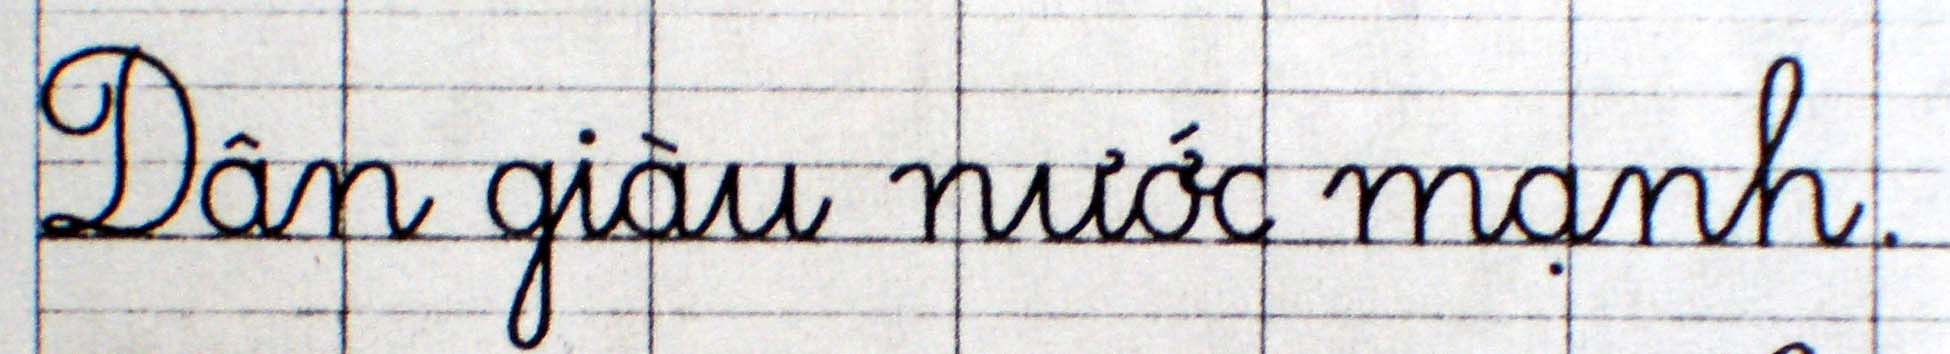 Dân giàu nước mạnh.